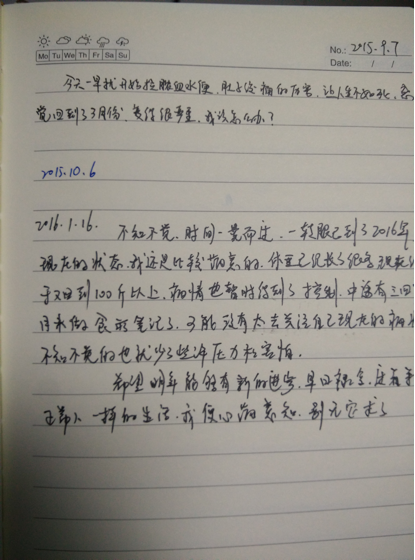 Mo Tu We Th Fr Sa Su
No.: 2015.9.7
Date: / /
今天一早就开始拉脓血水便,肚子疼痛的厉害,让人生不如死,感
觉回到了3月份,复作很严重,我该怎么办?
2015.10.6
2016.1.16. 不知不觉,时间一晃而过,一转眼已到了2016年
现在的状态,我还是比较满意的,体重已经长了很多现在
于又回到100斤以上,病情也暂时得到了控制,中途有三四
月未做 笔记了,可能没有太去关注自己现在的病
不知不觉的也就少了些许压力和害怕。
希望明年能够有新的进步,早日
正常人一样的生活,我便心满意知,别无它求了